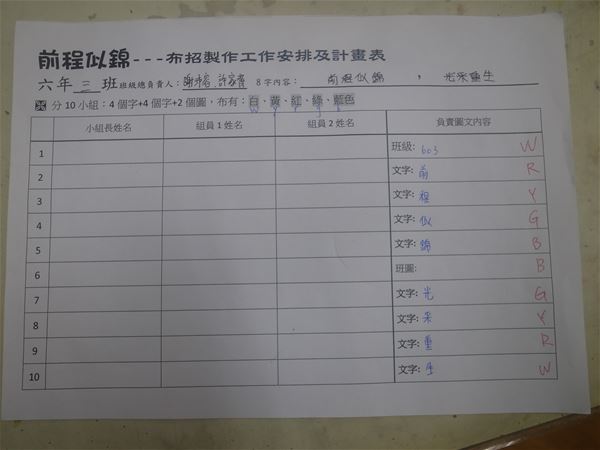 前程似錦---布招製作工作安排及計畫表
六年三班 班級總負責人: 8字內容: 前程似錦 , 光采重生
※ 分10小組:4個字+4個字+2個圖,布有:白、黃、紅、綠、藍色
小組長姓名 組員1姓名 組員2姓名 負責圖文內容
1 班級: 603 W
2 文字: 前 R
3 文字: 程 Y
4 文字: 似 G
5 文字: 錦 B
6 班圖: B
7 文字: 光 G
8 文字: 采 Y
9 文字: 重 R
10 文字: 生 W